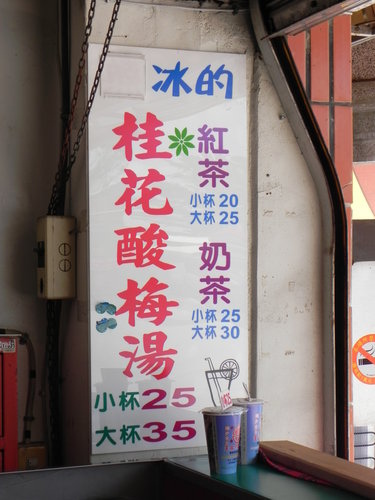 冰的
桂花酸梅湯
小杯25
大杯35
紅茶
小杯20
大杯25
奶茶
小杯25
大杯30